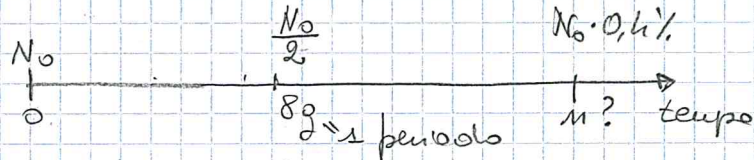 N₀
N₀/2
N₀·0,4%
0
8g = 1 periodo
n?
tempo